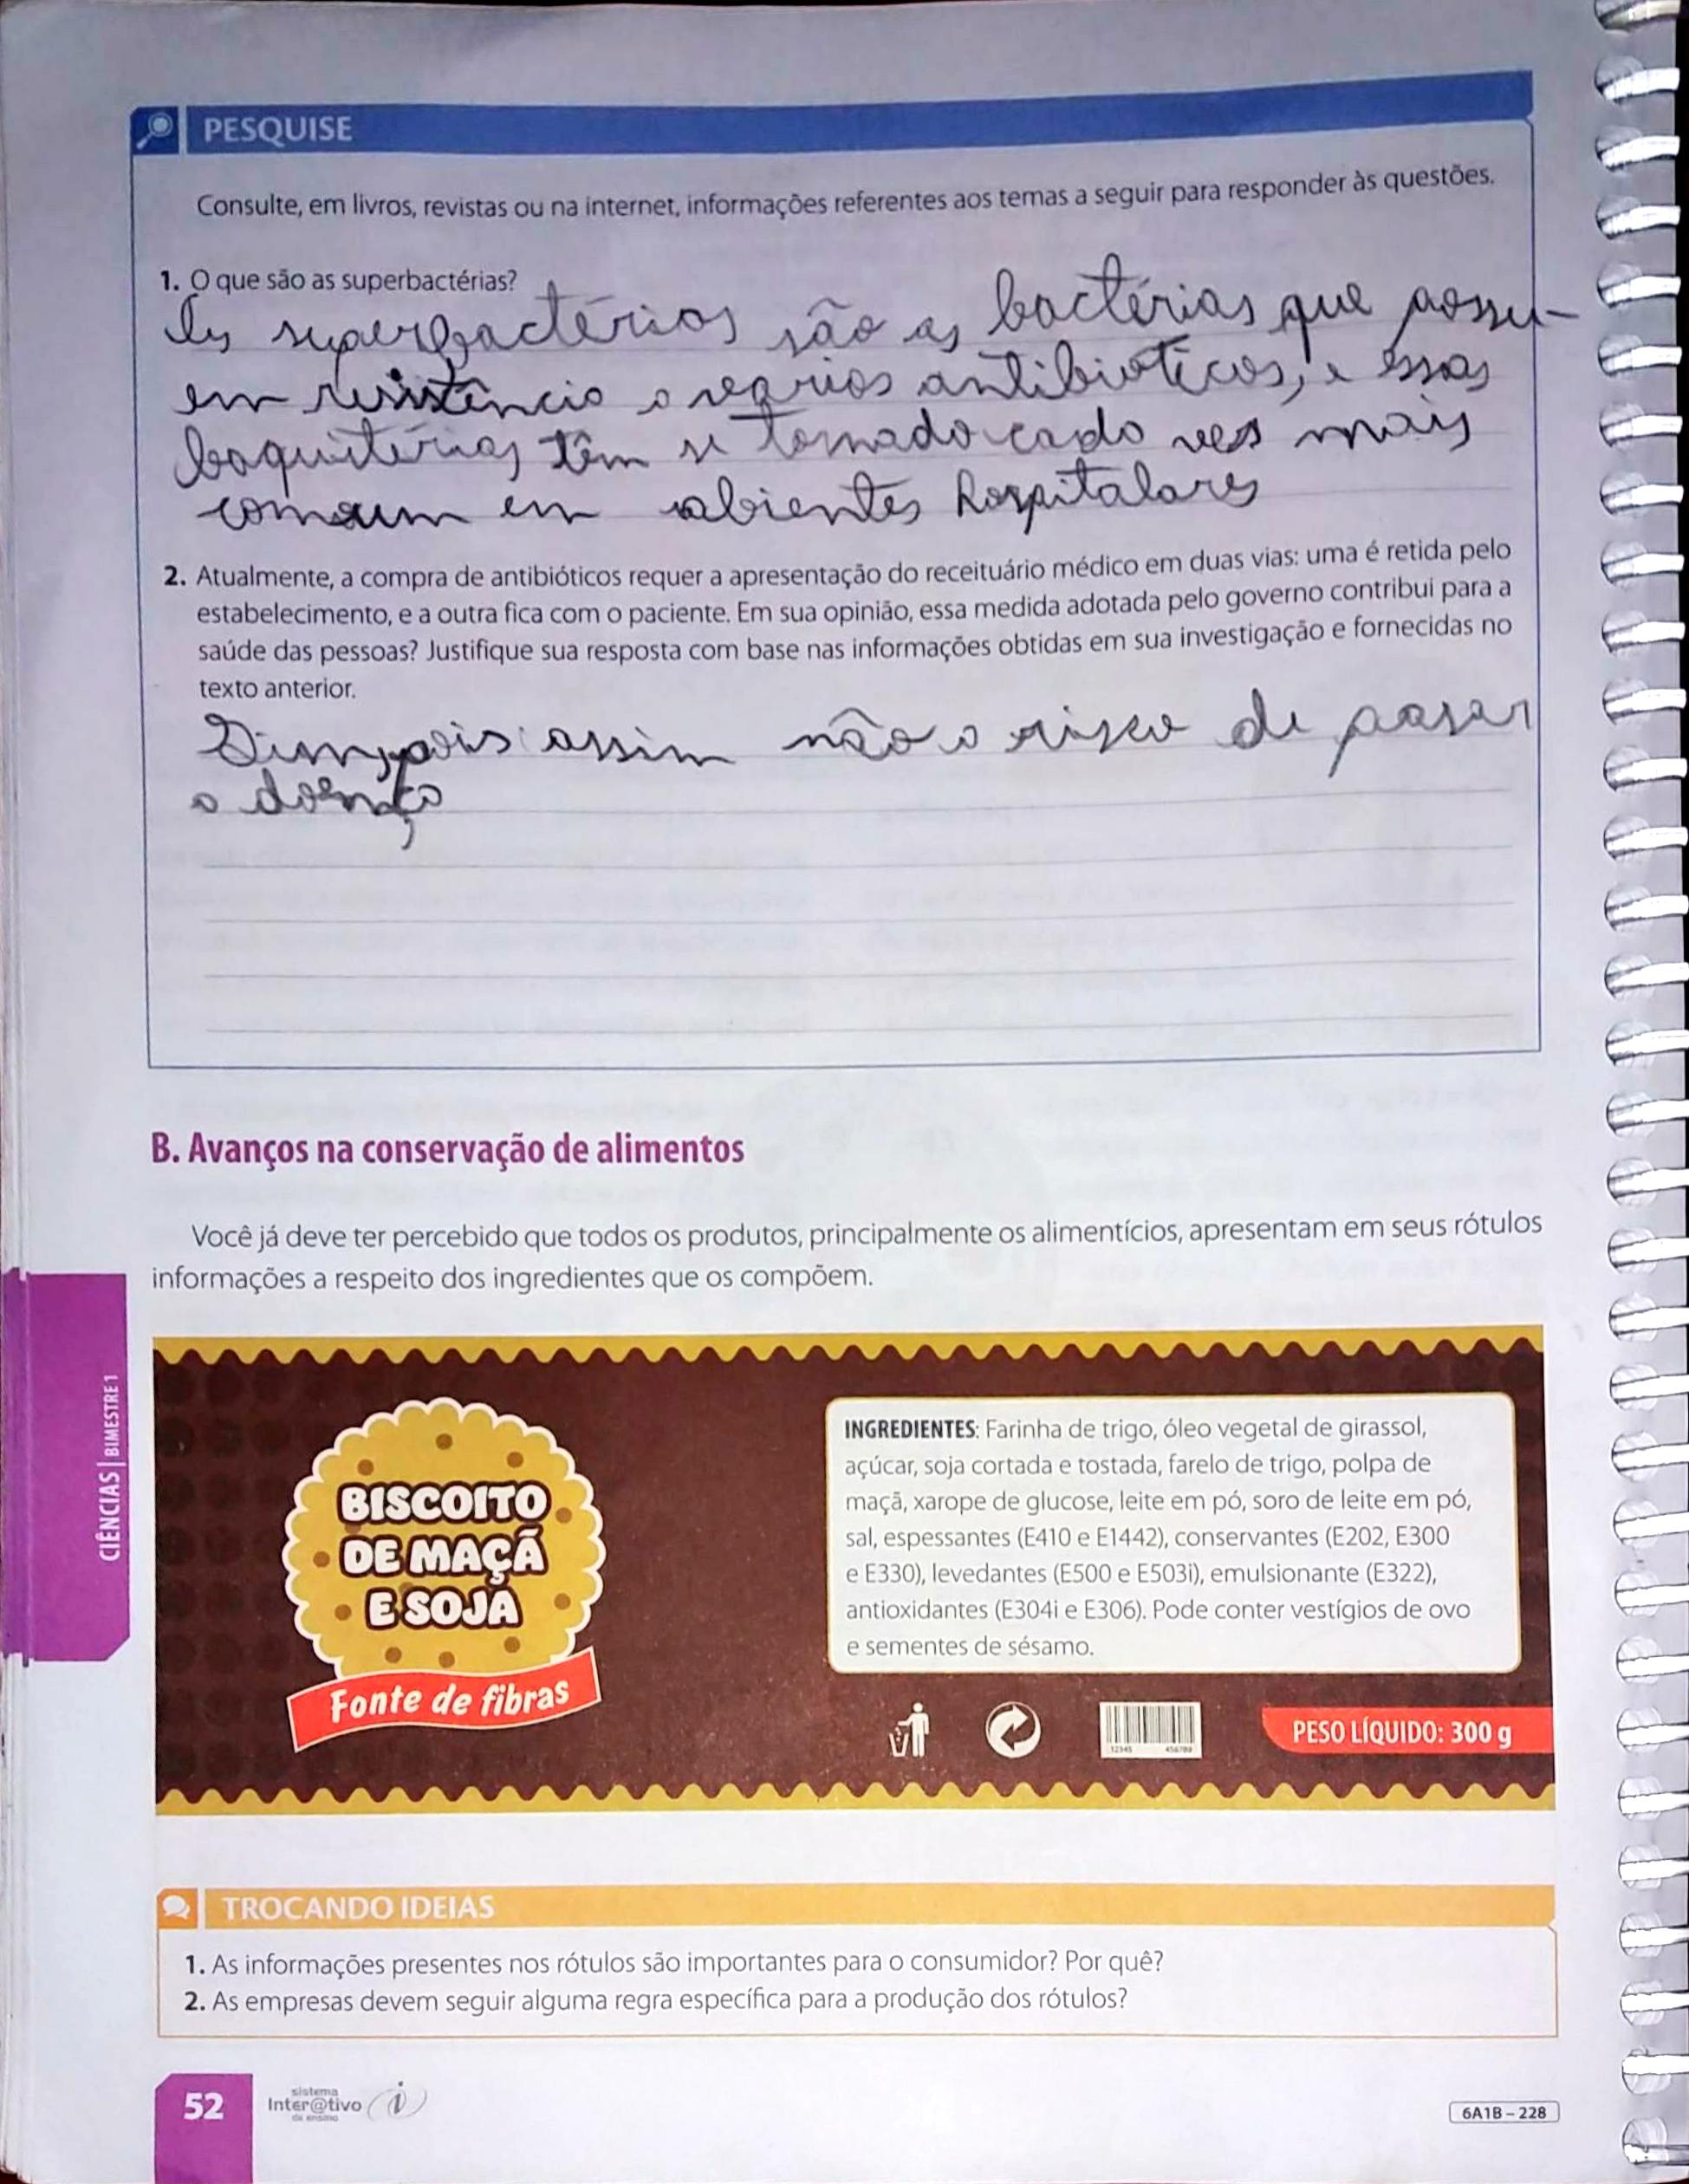 PESQUISE
Consulte, em livros, revistas ou na internet, informações referentes aos temas a seguir para responder às questões.
1. O que são as superbactérias?
As superbactérias são as bactérias que possu-
em resistência a vearios antibioticos, e essas
baquitérias têm se tornado cada ves mais
comum em abientes hospitalares
2. Atualmente, a compra de antibióticos requer a apresentação do receituário médico em duas vias: uma é retida pelo
estabelecimento, e a outra fica com o paciente. Em sua opinião, essa medida adotada pelo governo contribui para a
saúde das pessoas? Justifique sua resposta com base nas informações obtidas em sua investigação e fornecidas no
texto anterior.
Sim, pois assim não a risco de pasar
a doença
B. Avanços na conservação de alimentos
Você já deve ter percebido que todos os produtos, principalmente os alimentícios, apresentam em seus rótulos
informações a respeito dos ingredientes que os compõem.
BISCOITO
DE MAÇÃ
E SOJA
Fonte de fibras
INGREDIENTES: Farinha de trigo, óleo vegetal de girassol,
açúcar, soja cortada e tostada, farelo de trigo, polpa de
maçã, xarope de glucose, leite em pó, soro de leite em pó,
sal, espessantes (E410 e E1442), conservantes (E202, E300
e E330), levedantes (E500 e E503i), emulsionante (E322),
antioxidantes (E304i e E306). Pode conter vestígios de ovo
e sementes de sésamo.
12345 456789
PESO LÍQUIDO: 300 g
CIÊNCIAS | BIMESTRE 1
TROCANDO IDEIAS
1. As informações presentes nos rótulos são importantes para o consumidor? Por quê?
2. As empresas devem seguir alguma regra específica para a produção dos rótulos?
52
sistema
Inter@tivo
de ensino
6A1B – 228